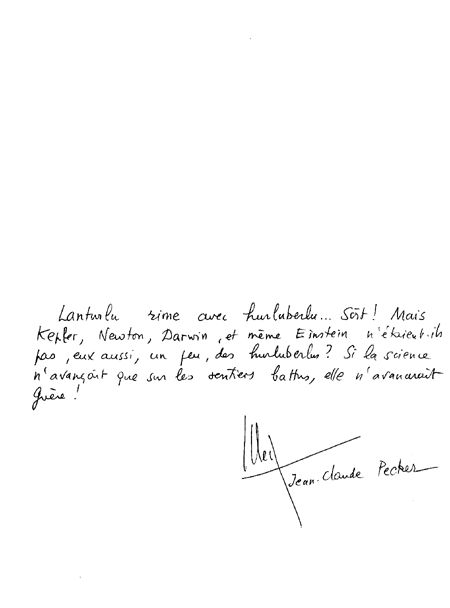 Lanturlu rime avec hurluberlu... Soit ! Mais
Kepler, Newton, Darwin, et même Einstein n'étaient-ils
pas, eux aussi, un peu, des hurluberlus ? Si la science
n'avançait que sur les sentiers battus, elle n'avancerait
guère !
Jean-Claude Pecker